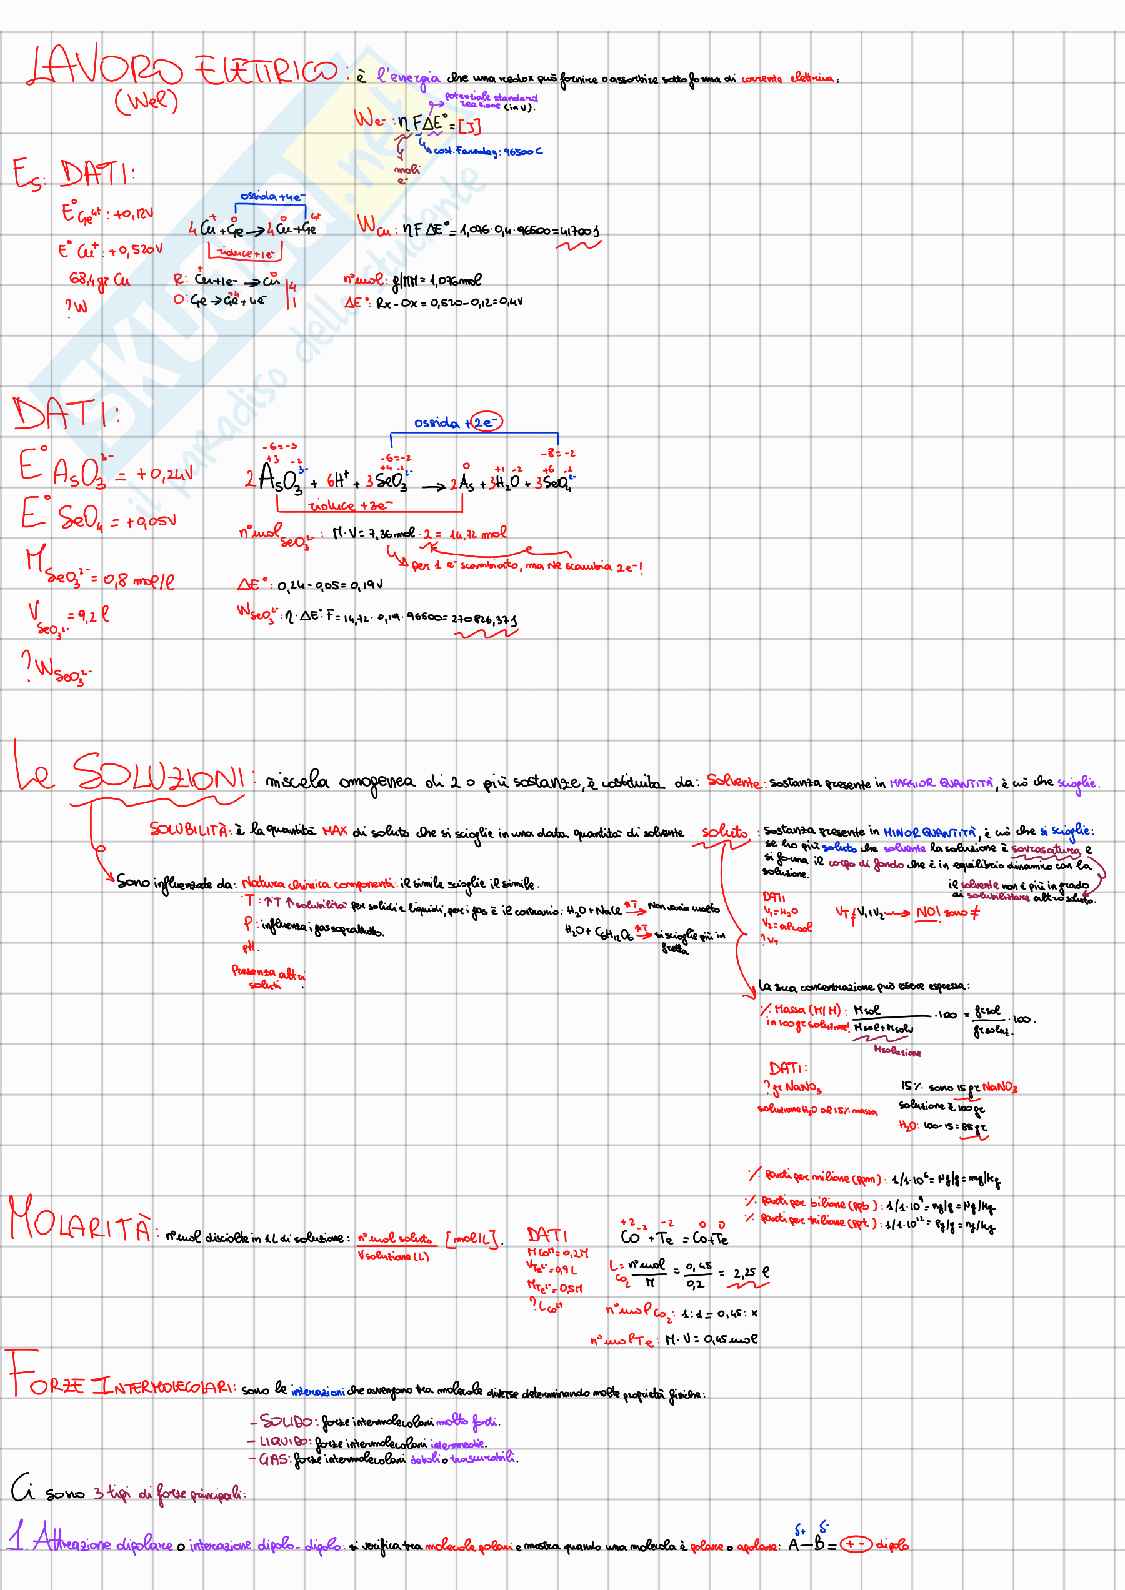 LAVORO ELETTRICO: è l'energia che una redox può fornire o assorbire sotto forma di corrente elettrica.
(Wel)
potenziale standard
reazione (in V).
We-: η F ΔE° = [J]
cost. Faraday: 96500 C
moli
e-
Es. DATI:
ossida +4e-
E° Ge4+: +0,12V
4Cu+ + Ge → 4Cu + Ge4+
WCu: η F ΔE° = 1,076·0,4·96500 = 41700 J
E° Cu+: +0,520V
riduce +1e-
68,4gr Cu
R: Cu+1e- → Cu | 4
n°mol: g/MM = 1,076 mol
?W
O: Ge → Ge4+ + 4e- | 1
ΔE°: Rx - Ox = 0,520 - 0,12 = 0,4V
DATI:
ossida + 2e-
-6=-3 -6=-2 -8=-2
+3 -2 +4 -2 0 +1 -2 +6 -2
E° AsO3 3- = +0,24V
2AsO3 3- + 6H+ + 3SeO3 2- → 2As + 3H2O + 3SeO4 2-
riduce +3e-
E° SeO4 = +0,05V
n°mol SeO3 2-: M·V = 7,36 mol · 2 = 14,72 mol
per 1 e- scambiato, ma ne scambia 2e-!
M SeO3 2- = 0,8 mol/l
ΔE°: 0,24 - 0,05 = 0,19V
V SeO3 2- = 9,2 l
W SeO3 2-: η·ΔE°·F = 14,72·0,19·96500 = 270826,37 J
? W SeO3 2-
Le SOLUZIONI: miscela omogenea di 2 o più sostanze, è costituita da: Solvente: sostanza presente in MAGGIOR QUANTITÀ, è ciò che scioglie.
SOLUBILITÀ: è la quantità MAX di soluto che si scioglie in una data quantità di solvente
soluto: sostanza presente in MINOR QUANTITÀ, è ciò che si scioglie:
se ho più soluto che solvente la soluzione è sovrasatura, e
si forma il corpo di fondo che è in equilibrio dinamico con la
soluzione.
il solvente non è più in grado
di solubilizzare altro soluto.
Sono influenzate da: Natura chimica componenti: il simile scioglie il simile.
T: ↑T ↑solubilità per solidi e liquidi, per i gas è il contrario: H2O + NaCl ↑T→ Non varia molto
P: influenza i gas soprattutto.
H2O + C6H12O6 ↑T→ si scioglie più in
fretta
pH.
Presenza altri
soluti
DATI
V1=H2O
V2=alcool
?VT
VT ≠ V1+V2 → NO! sono ≠
La sua concentrazione può essere espressa:
% Massa (M/M): Msol / Msol+Msolv ·100 = grsol / grsoluz. ·100.
in 100 gr soluzione!
Msoluzione
DATI:
? gr NaNO3
15% sono 15 gr NaNO3
soluzione H2O al 15% massa
soluzione è 100 gr
H2O: 100-15 = 85 gr
% parti per milione (ppm): 1/1·10^6 = μg/g = mg/kg
% parti per bilione (ppb): 1/1·10^9 = ng/g = μg/kg
% parti per trilione (ppt): 1/1·10^12 = pg/g = ng/kg
MOLARITÀ: n°mol disciolte in 1L di soluzione: n°mol soluto / V soluzione (L) [mol/L].
DATI
M Co2+ = 0,2M
V Te2- = 0,9 L
M Te2- = 0,5M
? L Co2+
+2 -2 0 0
Co + Te = Co + Te
L Co2 = n°mol / M = 0,45 / 0,2 = 2,25 l
n°mol Co2: 1:1 = 0,45 : x
n°mol Te: M·V = 0,45 mol
FORZE INTERMOLECOLARI: sono le interazioni che avvengono tra molecole diverse determinando molte proprietà fisiche:
- SOLIDO: forze intermolecolari molto forti.
- LIQUIDO: forze intermolecolari intermedie.
- GAS: forze intermolecolari deboli o trascurabili.
Ci sono 3 tipi di forze principali:
1. Attrazione dipolare o interazione dipolo-dipolo: si verifica tra molecole polari e mostra quando una molecola è polare o apolare: δ+ A—B δ- = (+ -) dipolo